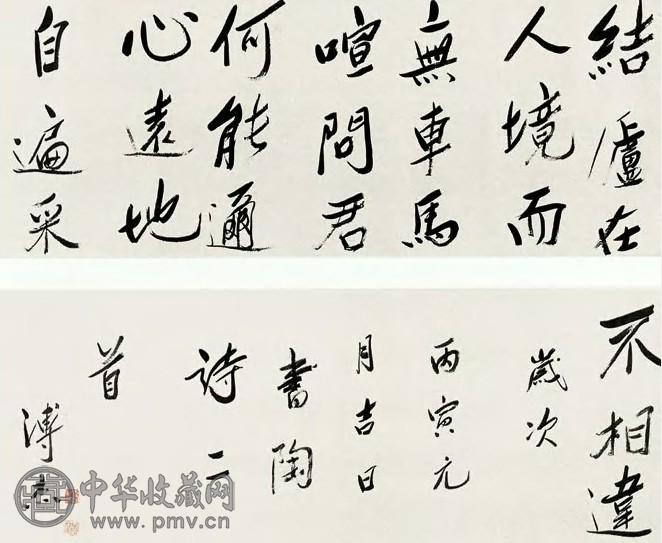 結廬在
人境而
無車馬
喧問君
何能邇
心遠地
自遍采
不相違
歲次
丙寅元
月吉日
書陶
詩二
首
溥
中华收藏网
www.pmv.cn